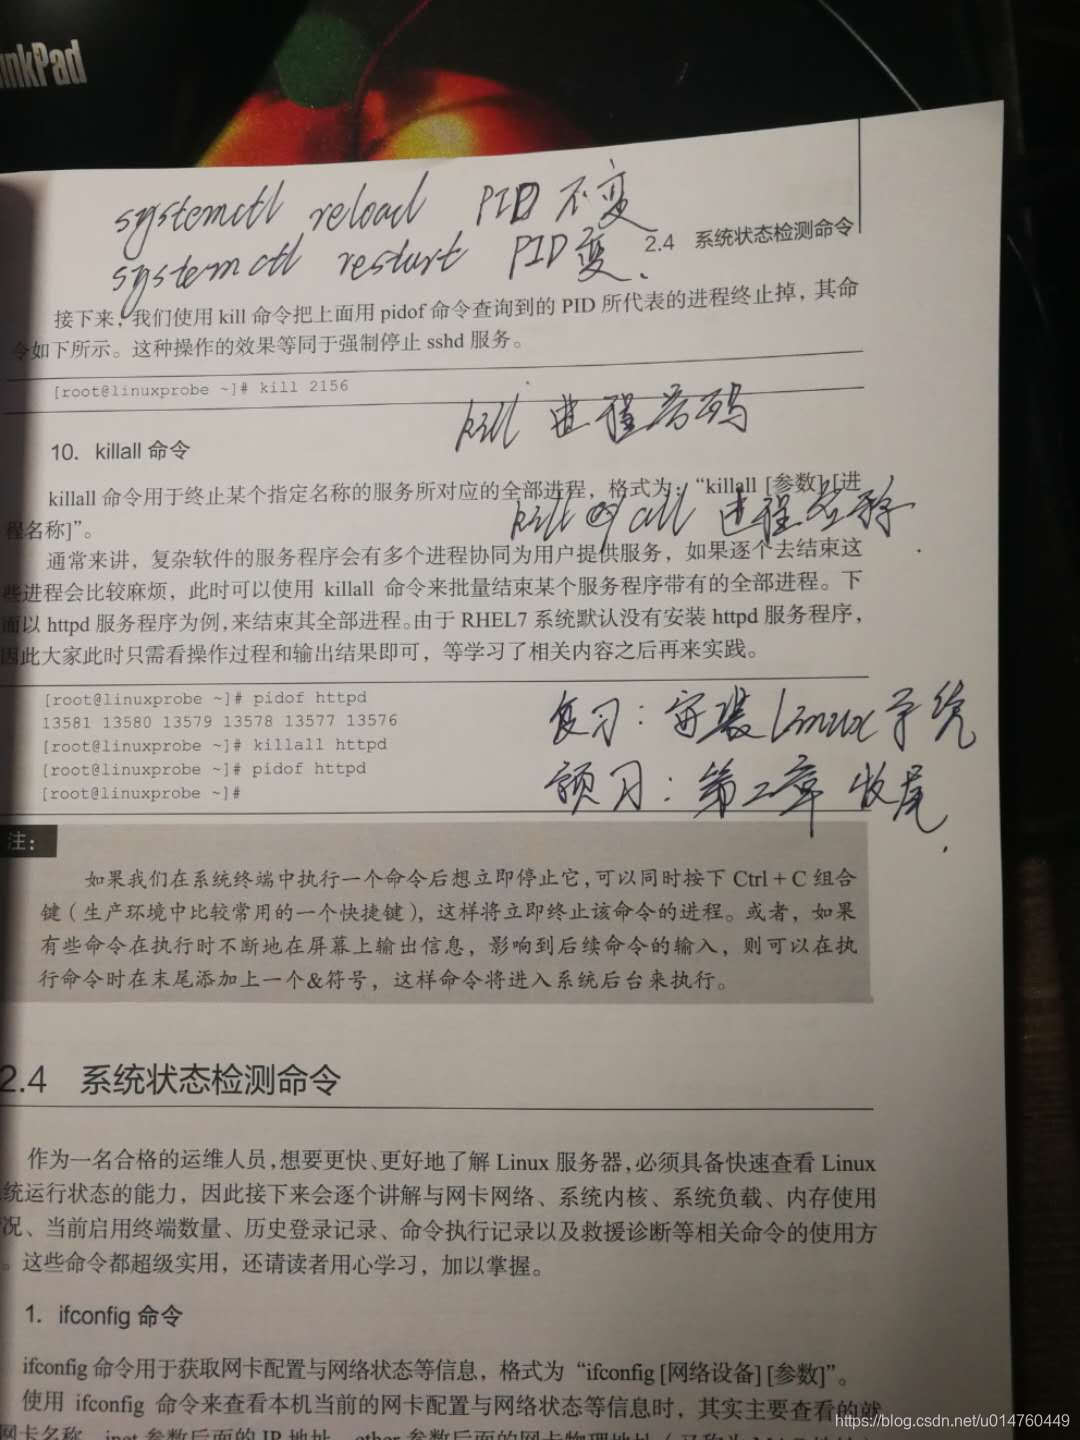 inkPad
systemctl reload PID 不变
2.4 系统状态检测命令
systemctl restart PID 变.
接下来,我们使用 kill 命令把上面用 pidof 命令查询到的 PID 所代表的进程终止掉，其命
令如下所示。这种操作的效果等同于强制停止 sshd 服务。
[root@linuxprobe ~]# kill 2156
kill 进程号码
10. killall 命令
killall 命令用于终止某个指定名称的服务所对应的全部进程，格式为：“killall [参数] [进
kill all 进程名称
程名称]”。
通常来讲，复杂软件的服务程序会有多个进程协同为用户提供服务，如果逐个去结束这
些进程会比较麻烦，此时可以使用 killall 命令来批量结束某个服务程序带有的全部进程。下
面以 httpd 服务程序为例,来结束其全部进程。由于 RHEL7 系统默认没有安装 httpd 服务程序，
因此大家此时只需看操作过程和输出结果即可，等学习了相关内容之后再来实践。
[root@linuxprobe ~]# pidof httpd
13581 13580 13579 13578 13577 13576
[root@linuxprobe ~]# killall httpd
[root@linuxprobe ~]# pidof httpd
[root@linuxprobe ~]#
复习：安装Linux系统
预习：第二章 收尾.
注：
如果我们在系统终端中执行一个命令后想立即停止它,可以同时按下 Ctrl + C 组合
键（生产环境中比较常用的一个快捷键），这样将立即终止该命令的进程。或者，如果
有些命令在执行时不断地在屏幕上输出信息，影响到后续命令的输入，则可以在执
行命令时在末尾添加上一个&符号，这样命令将进入系统后台来执行。
2.4 系统状态检测命令
作为一名合格的运维人员,想要更快、更好地了解 Linux 服务器,必须具备快速查看 Linux
统运行状态的能力，因此接下来会逐个讲解与网卡网络、系统内核、系统负载、内存使用
况、当前启用终端数量、历史登录记录、命令执行记录以及救援诊断等相关命令的使用方
。这些命令都超级实用，还请读者用心学习，加以掌握。
1. ifconfig 命令
ifconfig 命令用于获取网卡配置与网络状态等信息，格式为“ifconfig [网络设备] [参数]”。
使用 ifconfig 命令来查看本机当前的网卡配置与网络状态等信息时，其实主要查看的就
网卡名称、inet 参数后面的 IP 地址、ether 参数后面的网卡物理地址（又称为 MAC 地址）
https://blog.csdn.net/u014760449